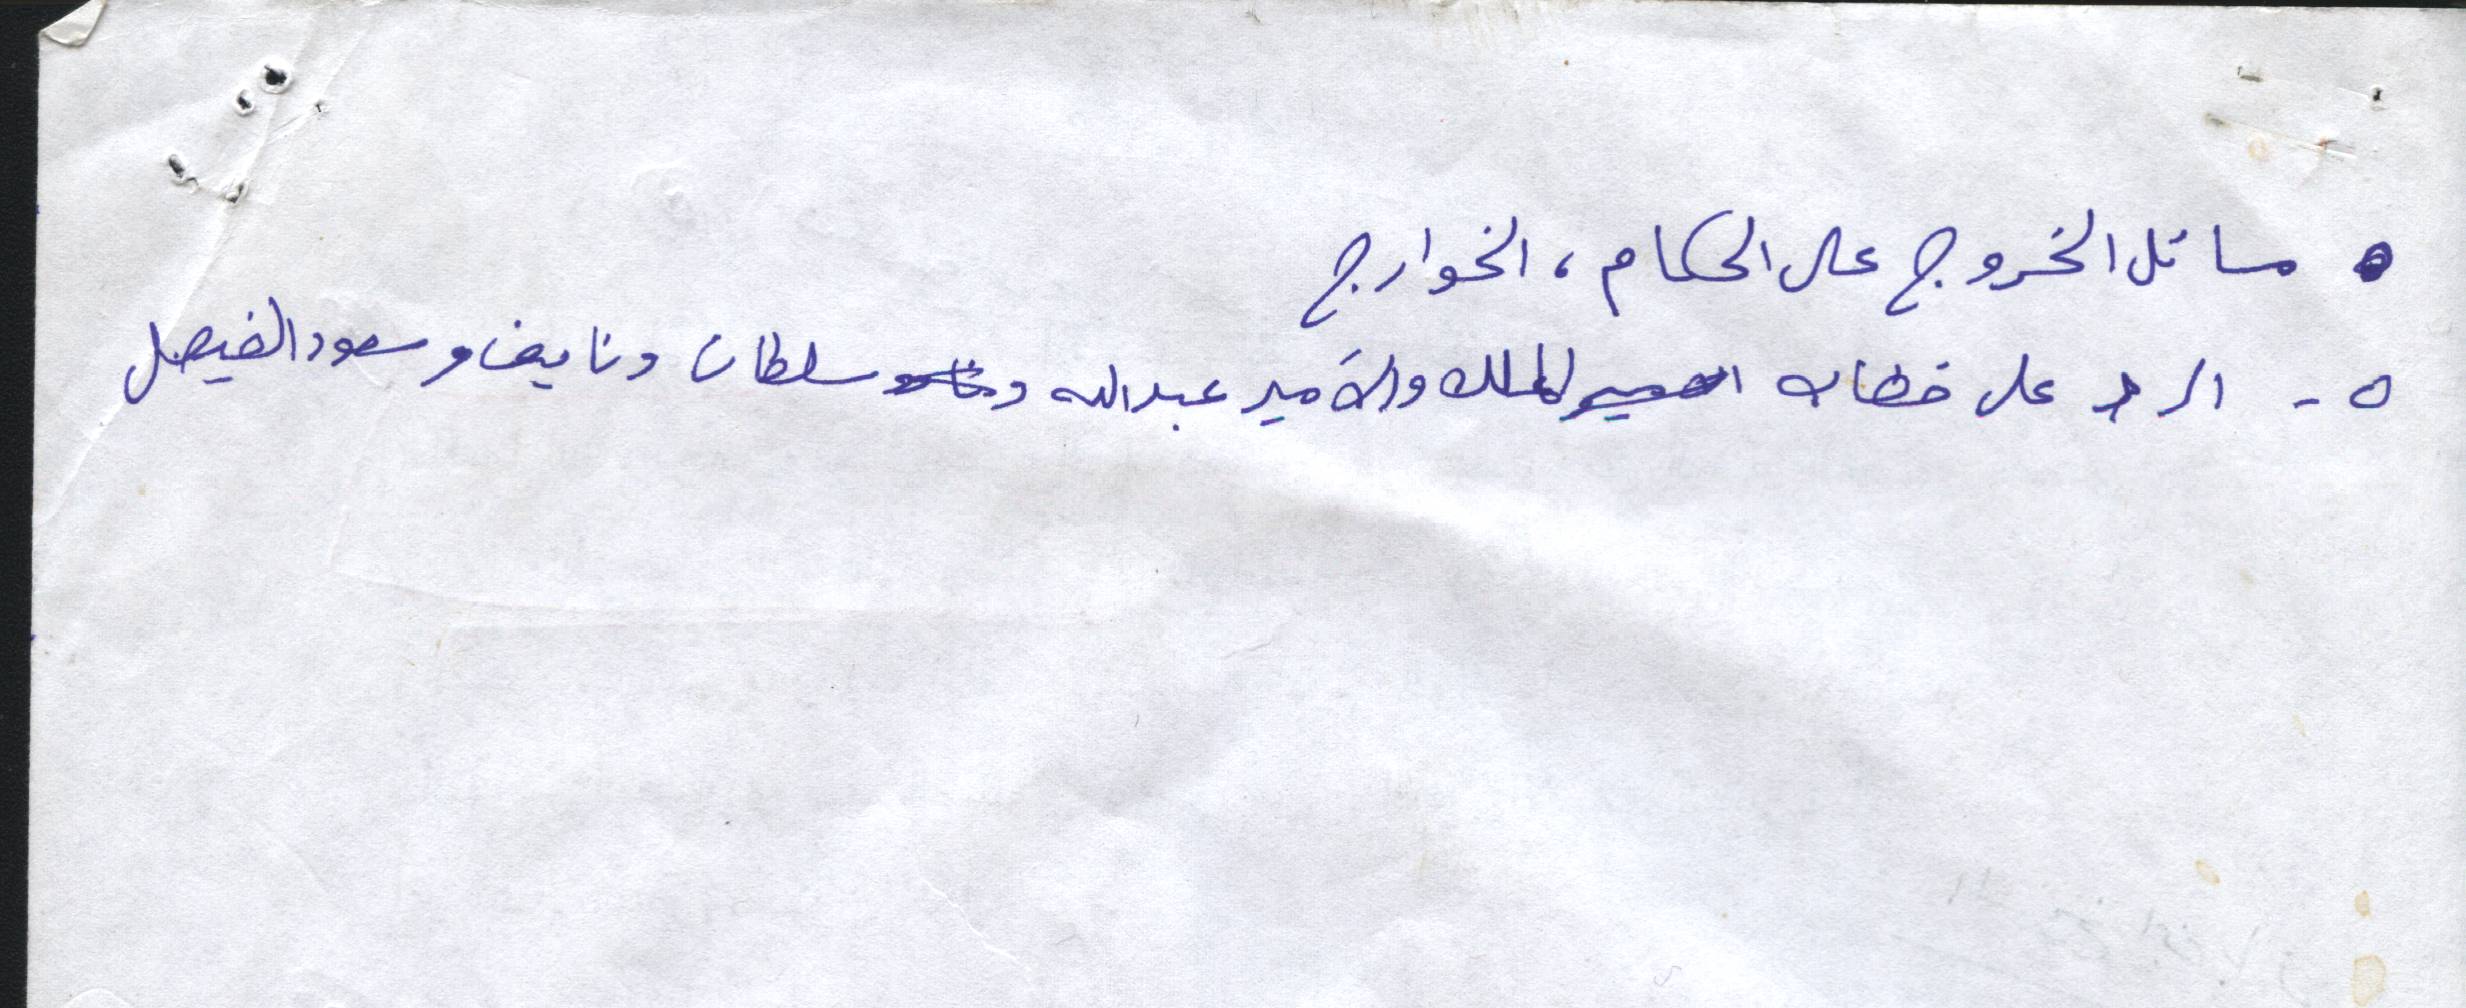 • مسائل الخروج على الحكام ، الخوارج
٥ - الرد على خطاب الملك والأمير عبدالله و سلطان ونايف وسعود الفيصل